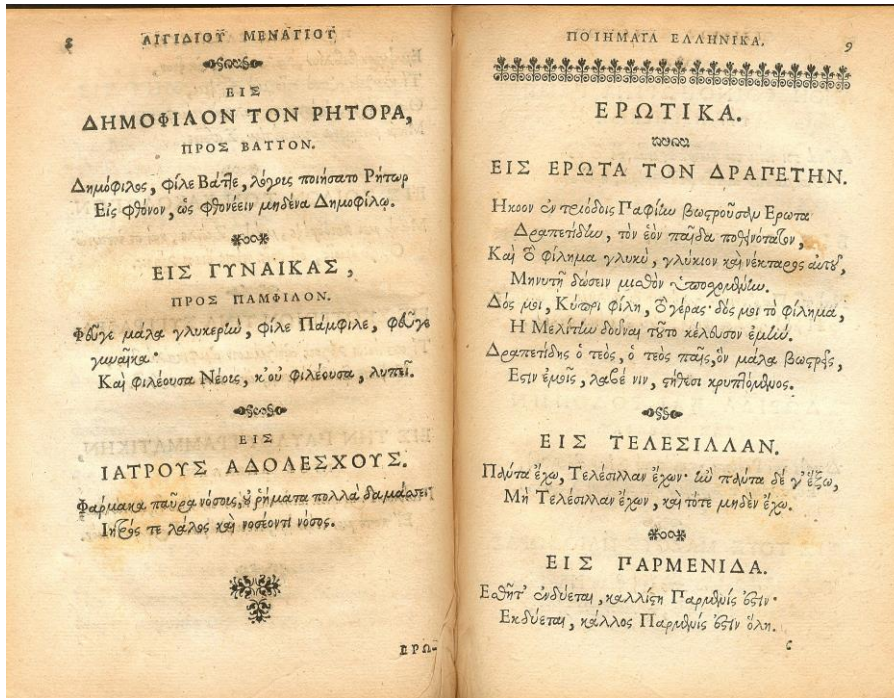 8
ΑΙΓΙΔΙΟΥ ΜΕΝΑΓΙΟΥ
ΕΙΣ
ΔΗΜΟΦΙΛΟΝ ΤΟΝ ΡΗΤΟΡΑ,
ΠΡΟΣ ΒΑΤΤΟΝ.
Δημόφιλος, φίλε Βάτλε, λόγοις ποιήσατο Ρήτωρ
Εἰς φθόνον, ὡς φθονέειν μηδένα Δημοφίλῳ.
ΕΙΣ ΓΥΝΑΙΚΑΣ,
ΠΡΟΣ ΠΑΜΦΙΛΟΝ.
Φεῦγε μάλα γλυκερὴν, φίλε Πάμφιλε, φεῦγε
γυναῖκα·
Καὶ φιλέουσα Νέοις, κ'οὐ φιλέουσα, λυπεῖ.
ΕΙΣ
ΙΑΤΡΟΥΣ ΑΔΟΛΕΣΧΟΥΣ.
Φάρμακα παῦρα νόσοις, ῥήματα πολλὰ
Ἰητρός τε λάλος καὶ νοσέοντι νόσος.
ΕΡΩ-
ΠΟΙΗΜΑΤΑ ΕΛΛΗΝΙΚΑ. 9
ΕΡΩΤΙΚΑ.
ΕΙΣ ΕΡΩΤΑ ΤΟΝ ΔΡΑΠΕΤΗΝ.
Ηκουν ἐν τριόδοις Παφίην βωστροῦσαν Ερωτα
Δραπετίδην, τὸν ἑὸν παῖδα ποθεινότατον,
Καὶ τὸ φίλημα γλυκὺ, γλύκιον καὶ νέκταρος αὐτοῦ,
Μηνυτῇ δώσειν μισθὸν ὑποσχομένην.
Δός μοι, Κύπρι φίλη, τὸ γέρας· δός μοι τὸ φίλημα,
Η Μελίτην δοῦναι τοῦτο κέλευσον ἐμήν.
Δραπετίδης ὁ τεὸς, ὁ τεὸς παῖς, ὃν μάλα βωστρεῖς,
Εστιν ἐμοῖς, λαβέ νιν, στήθεσι κρυπτόμενος.
ΕΙΣ ΤΕΛΕΣΙΛΛΑΝ.
Πάντα ἔχω, Τελέσιλλαν ἔχων· ἢν πάντα δέ γ'ἕξω,
Μὴ Τελέσιλλαν ἔχων, καὶ τότε μηδὲν ἔχω.
ΕΙΣ ΠΑΡΜΕΝΙΔΑ.
Εσθῆτ' ἐνδύεται, καλλίστη Παρμενίς ἐστιν·
Εκδύεται, κάλλος Παρμενίς ἐστιν ὅλη.
C